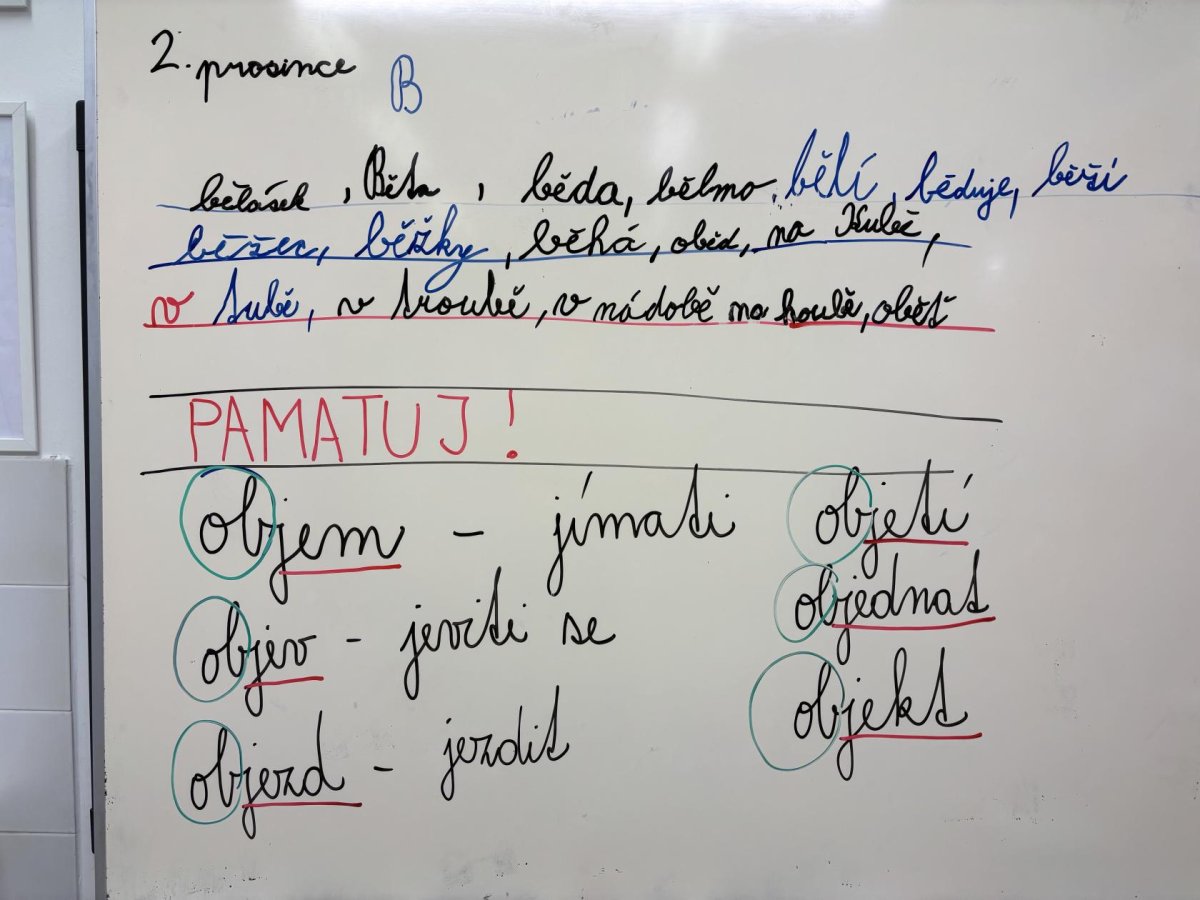 2. prosince
B
bělásek, Běta, běda, bělmo, bělí, běduje, běží
běžec, běžky, běhá, oběd, na Kubě,
v tubě, v troubě, v nádobě na houbě, oběť
PAMATUJ!
objem - jímati objetí
objev - jeviti se objednat
objezd - jezdit objekt